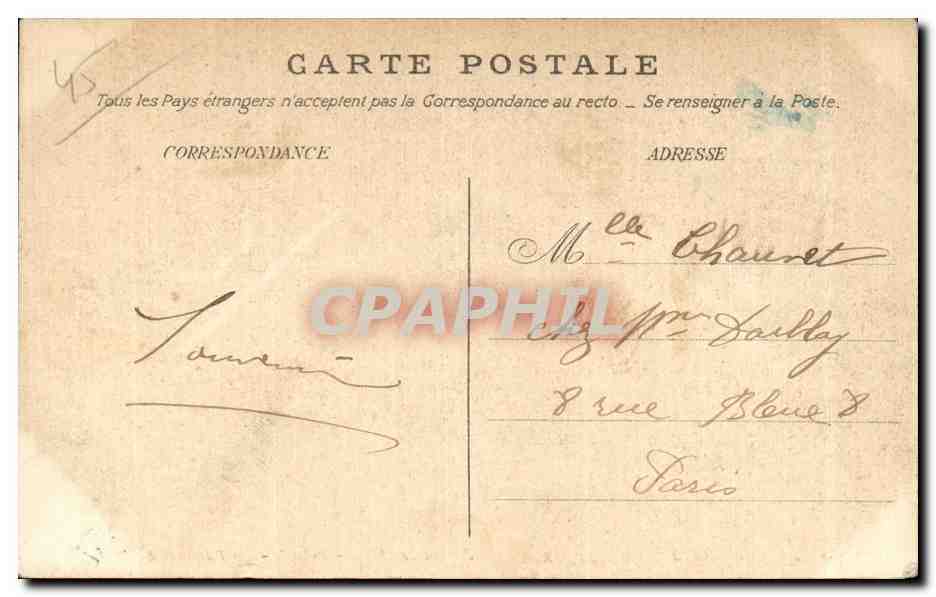 45
CARTE POSTALE
Tous les Pays étrangers n'acceptent pas la Correspondance au recto _ Se renseigner à la Poste.
CORRESPONDANCE
ADRESSE
Souvenir
Mlle Chauvet
chez Mme Darblay
8 rue Bleue 8
Paris
CPAPHIL